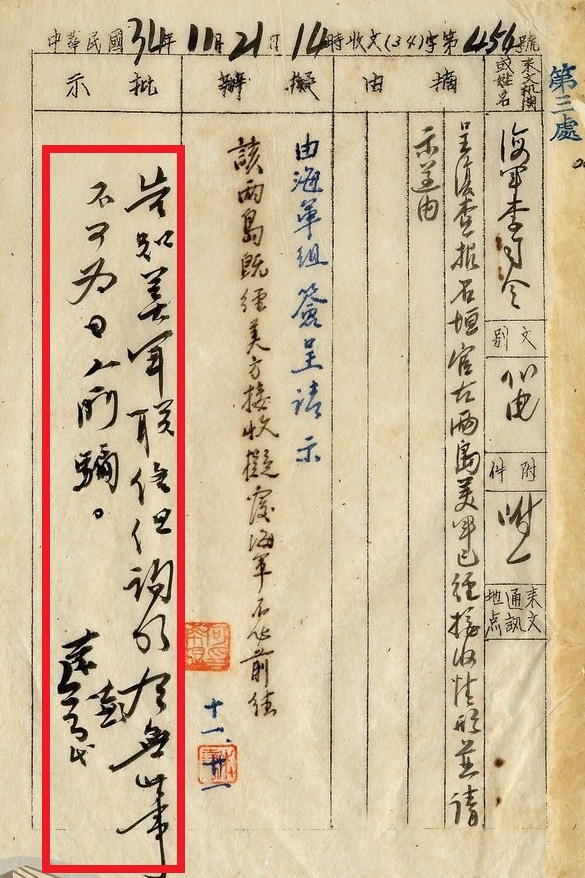 中華民國34年11月21日14時收文(34)字第456號
第三處
來文機關或姓名
海軍李司令
文別
代電
附件
附一
來文通訊地点
摘由
呈復查報石垣宮古兩島美軍已經接收情形並請
示遵由
擬辦
由海軍組簽呈請示
該兩島既經美方接收擬覆海軍不必前往
十一、廿一
批示
告知美軍联絡但詢明有無此事
不可為日人所騙。